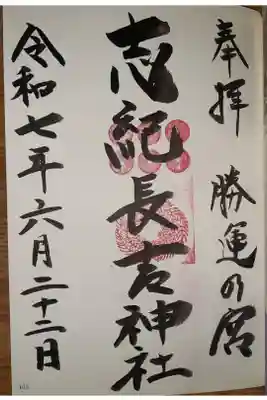 奉拝 勝運の宮
志紀長吉神社
令和七年六月二十二日